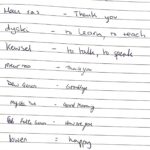 Meur ras - Thank you
dyski - to learn, to teach
Kewsel - to talk, to speak
Meur ras - Thank you
Dew Genes - Goodbye
Myttin Da - Good Morning
Fatla Genes - How are you
lowen = happy